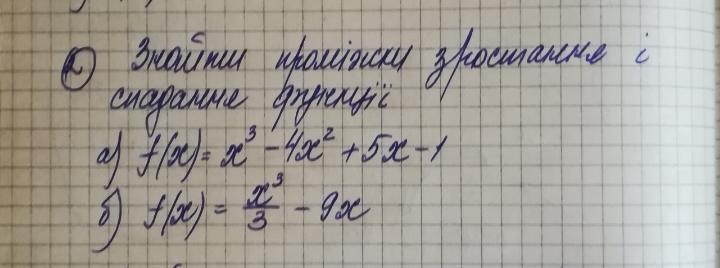 2) Знайти проміжки зростання і
спадання функції
а) f(x) = x³ - 4x² + 5x - 1
б) f(x) = x³/3 - 9x